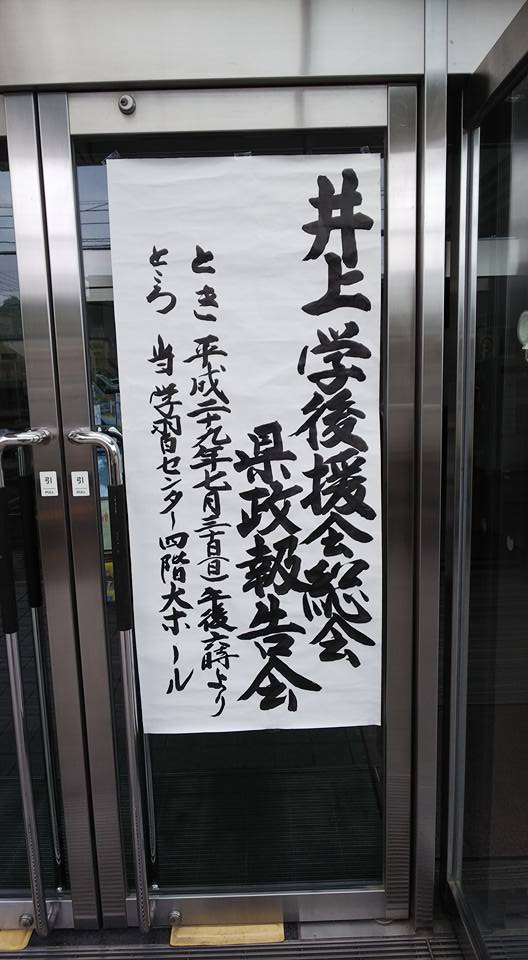 井上 学後援会総会
県政報告会
とき 平成二十九年七月三十日(日)午後六時より
ところ 当学習センター四階大ホール
引
PULL
引
PULL